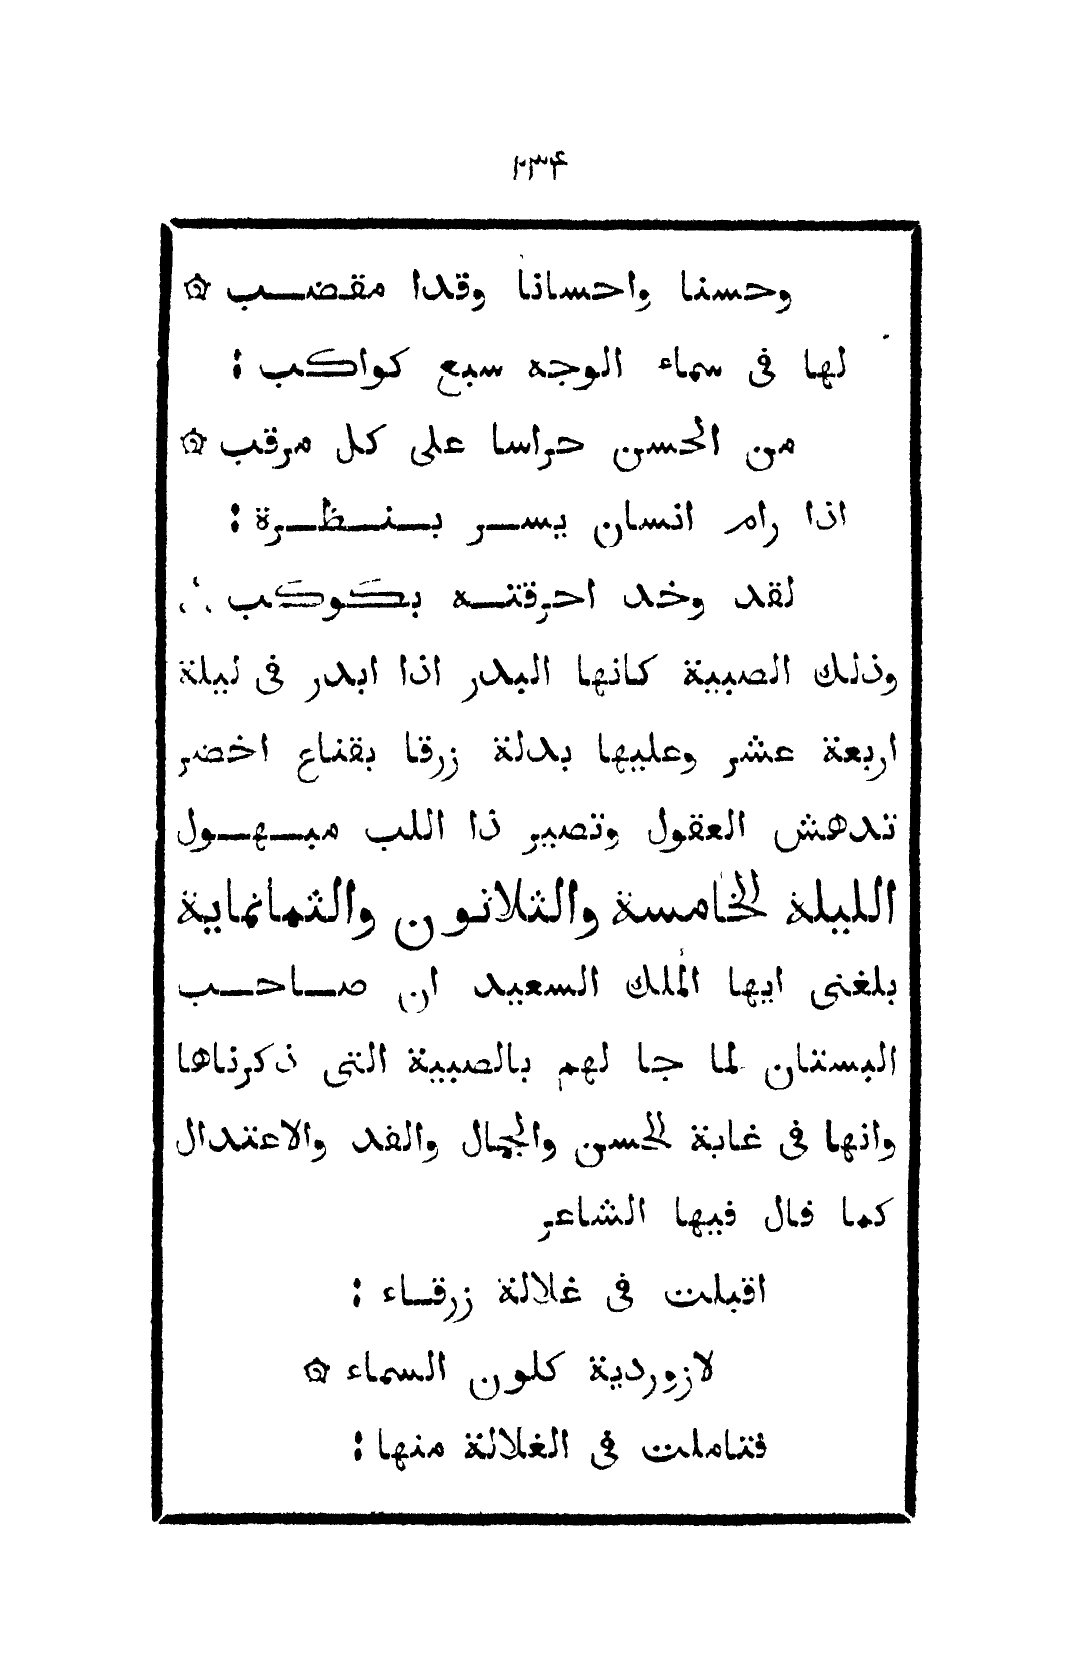 ٢٣۴
وحسنا واحسانا وقدا مقضب
لها فى سماء الوجه سبع كواكب :
من الحسن حراسا على كل مرقب
اذا رام انسان يسر بنظرة :
لقد وخد احرقته بكوكب ∴
وذلك الصبية كانها البدر اذا ابدر فى ليلة
اربعة عشر وعليها بدلة زرقا بقناع اخضر
تدهش العقول وتصير ذا اللب مبهول
الليلة الخامسة والثلاثون والثمانماية
بلغنى ايها الملك السعيد ان صاحب
البستان لما جا لهم بالصبية التى ذكرناها
وانها فى غابة الحسن والجمال والفد والاعتدال
كما فال فيها الشاعر
اقبلت فى غلالة زرقاء :
لازوردية كلون السماء
فتاملت فى الغلالة منها :